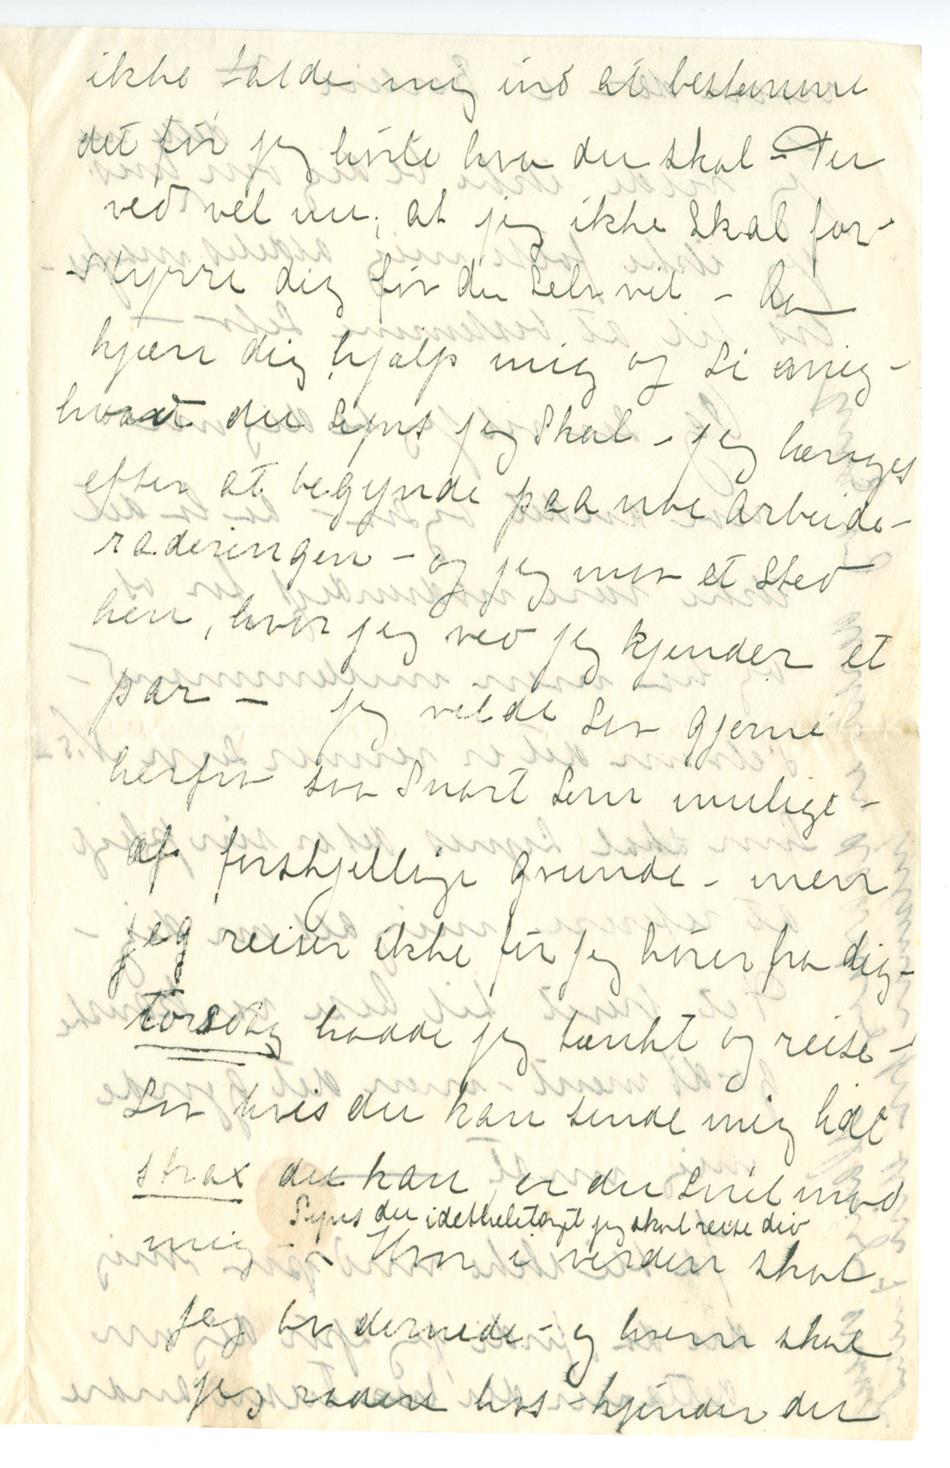 ikke falde mig ind at bestemme
det før jeg hørte hva du skal – Du
ved vel nu, at jeg ikke skal for-
styrre dig før du selv vil – Aa
kjære dig hjælp mig og si mig –
hvad du synes jeg skal – jeg længes
efter at begynde paa noe arbeide –
raderingen – og jeg maa et sted
hen, hvor jeg ved jeg kjender et
par – jeg vilde saa gjerne
herfra saa snart som mulig –
af forskjellige grunde – men
jeg reiser ikke før jeg hører fra dig –
torsdag hadde jeg tænkt og reise –
saa hvis du kan sende mig lidt
strax du kan er du snil mod
Synes du idethele tat jeg skal reise did
mig – Hvor i verden skal
jeg bo dernede – og hvem skal
jeg radere hos – kjender du